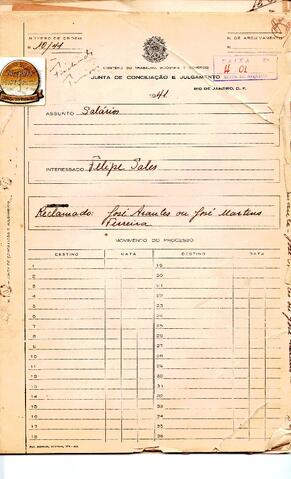 NUMERO DE ORDEM
N. DE ARQUIVAMENTO
10/41
MINISTERIO DO TRABALHO, INDUSTRIA E COMERCIO
JUNTA DE CONCILIAÇÃO E JULGAMENTO
CAIXA
H 01
1941
RIO DE JANEIRO, D. F.
ASSUNTO Salários
INTERESSADO Filipe Sales
Reclamado: José Arantes ou José Martins
Ferreira
MOVIMENTO DO PROCESSO
DESTINO DATA DESTINO DATA
1 19
2 20
3 21
4 22
5 23
6 24
7 25
8 26
9 27
10 28
11 29
12 30
13 31
14 32
15 33
16 34
17 35
18 36